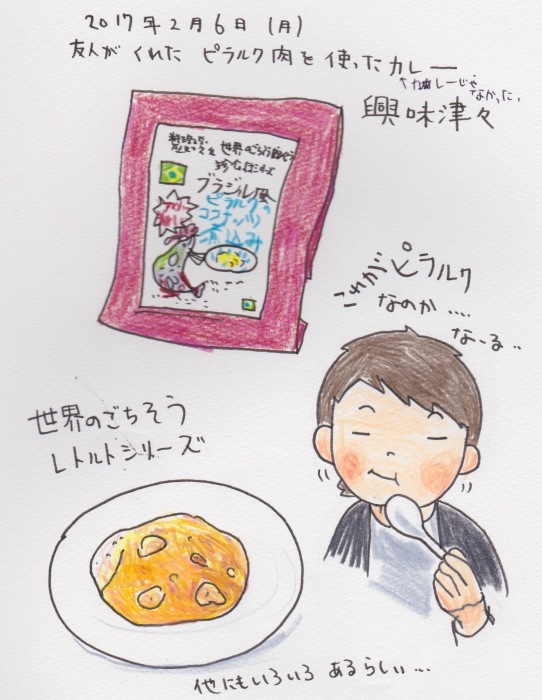 2017年2月6日(月)
友人がくれた ピラルク肉を使ったカレー
↑カレーじゃ
なかった。
興味津々
世界のごちそう
ブラジル風
ピラルクの
ココナッツ
煮込み
これがピラルク
なのか....
な〜る..
世界のごちそう
レトルトシリーズ
他にもいろいろあるらしい...